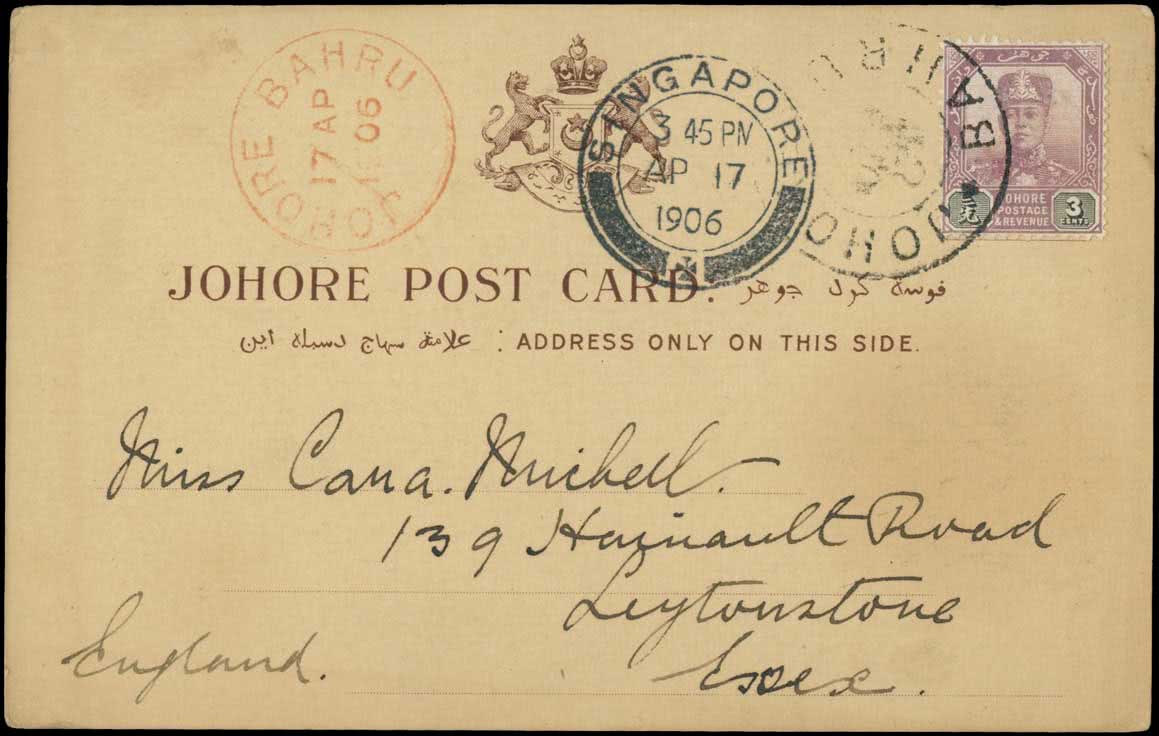 JOHORE BAHRU
17 AP
1906
SINGAPORE
3 45 PM
AP 17
1906
JOHO BA
JOHORE
POSTAGE
& REVENUE
3
CENTS
JOHORE POST CARD. فوسة كرد جوهر
علامة سهاج دسبله اين : ADDRESS ONLY ON THIS SIDE.
Miss Cara. Michell.
139 Hainault Road
Leytonstone
Essex.
England.